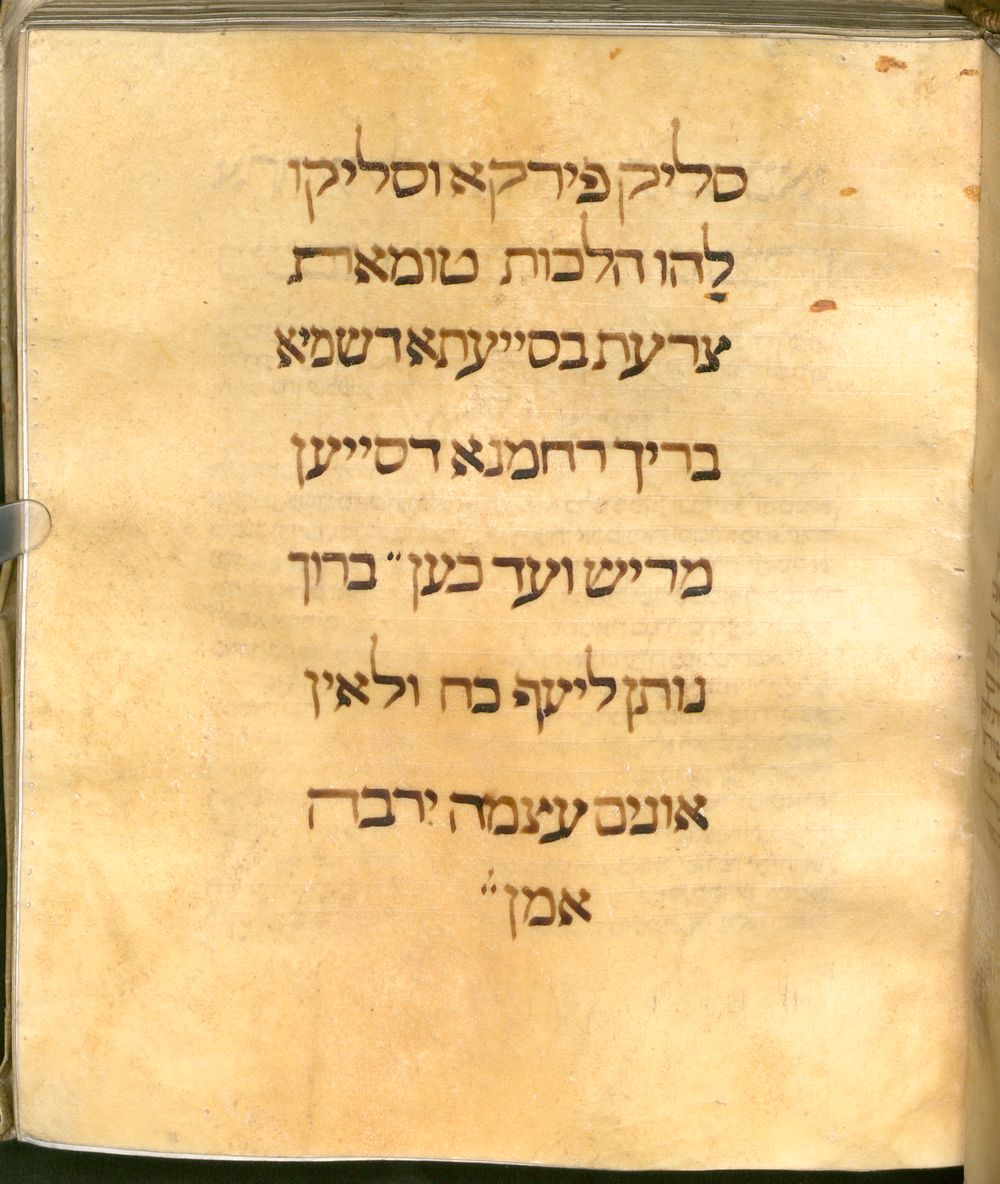 סליק פירקא וסליקו
להו הלכות טומאת
צרעת בסייעתא דשמיא
בריך רחמנא דסייען
מריש ועד כען״ ברוך
נותן ליעף כח ולאין
אונים עצמה ירבה
אמן״